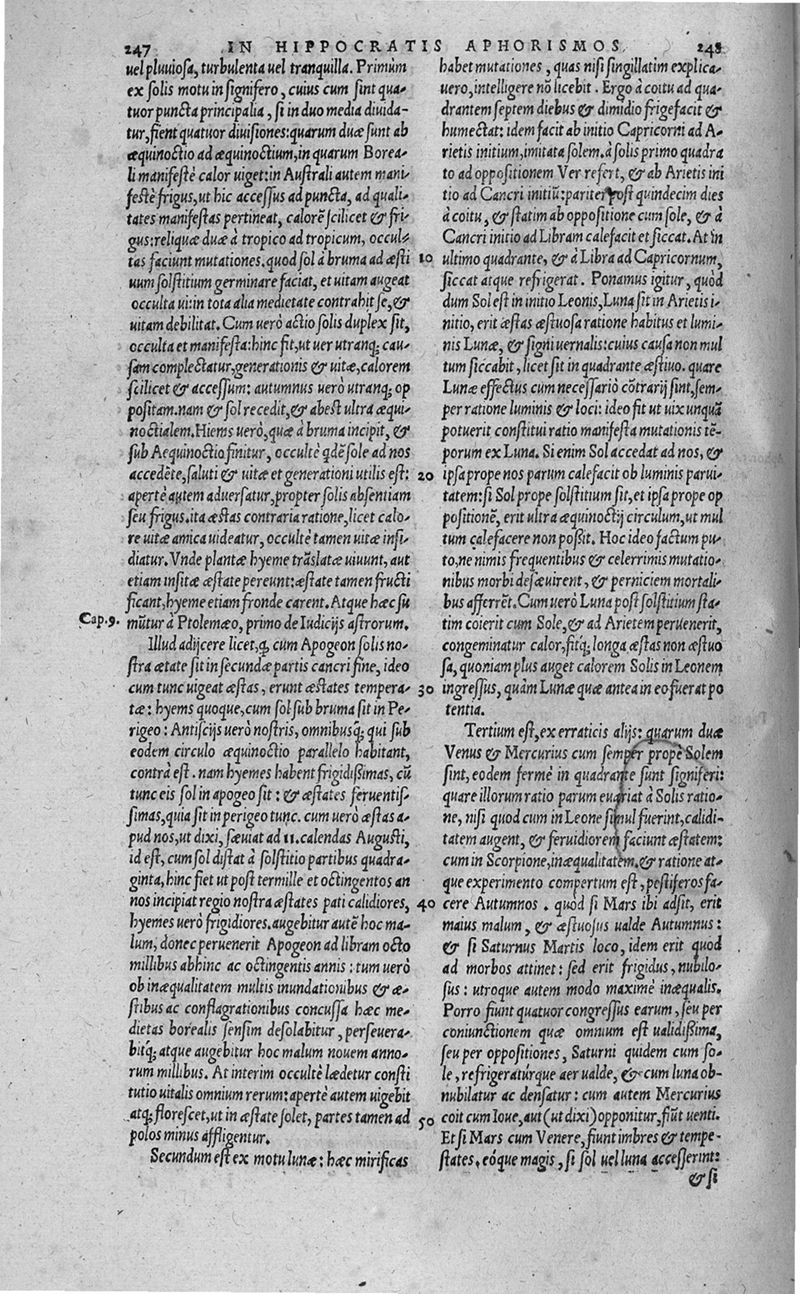 247 IN HIPPOCRATIS APHORISMOS. 248
uel pluuiosa, turbulenta uel tranquilla. Primùm
ex solis motu in signifero, cuius cum sint qua⸗
tuor puncta principalia, si in duo media diuida⸗
tur, fient quatuor diuisiones: quarum duæ sunt ab
æquinoctio ad æquinoctium, in quarum Borea⸗
li manifestè calor uiget: in Australi autem mani
festè frigus, ut hic accessus ad puncta, ad quali⸗
tates manifestas pertineat, calorẽ scilicet & fri⸗
gus: reliquæ duæ à tropico ad tropicum, occul⸗
tas faciunt mutationes. quod sol à bruma ad æsti
uum solstitium germinare faciat, et uitam augeat
occulta ui: in tota alia medietate contrahit se, &
uitam debilitat. Cum uerò actio solis duplex sit,
occulta et manifesta: hinc fit, ut uer utranq; cau⸗
sam complectatur, generationis & uitæ, calorem
scilicet & accessum: autumnus uerò utranq; op
positam. nam & sol recedit, & abest ultra æqui⸗
noctialem. Hiems uerò, quæ à bruma incipit, &
sub Aequinoctio finitur, occultè qdẽ sole ad nos
accedẽte, saluti & uitæ et generationi utilis est:
apertè autem aduersatur, propter solis absentiam
seu frigus. ita æstas contraria ratione, licet calo⸗
re uitæ amica uideatur, occultè tamen uitæ insi⸗
diatur. Vnde plantæ hyeme trãslatæ uiuunt, aut
etiam insitæ æstate pereunt: æstate tamen fructi
ficant, hyeme etiam fronde carent. Atque hæc su
Cap. 9. mũtur à Ptolemæo, primo de Iudicijs astrorum.
Illud adijcere licet, q, cum Apogeon solis no⸗
stra ætate sit in secundæ partis cancri fine, ideo
cum tunc uigeat æstas, erunt æstates tempera⸗
tæ: hyems quoque, cum sol sub bruma sit in Pe⸗
rigeo: Antiscijs uerò nostris, omnibusq; qui sub
eodem circulo æquinoctio parallelo habitant,
contrà est. nam hyemes habent frigidissimas, cũ
tunc eis sol in apogeo sit: & æstates feruentis⸗
simas, quia sit in perigeo tunc. cum uerò æstas a⸗
pud nos, ut dixi, sæuiat ad 11. calendas Augusti,
id est, cum sol distat à solstitio partibus quadra⸗
ginta, hinc fiet ut post termille et octingentos an
nos incipiat regio nostra æstates pati calidiores,
hyemes uerò frigidiores. augebitur autẽ hoc ma⸗
lum, donec peruenerit Apogeon ad libram octo
millibus abhinc ac octingentis annis: tum uerò
ob inæqualitatem multis inundationibus & æ⸗
stibus ac conflagrationibus concussa hæc me⸗
dietas borealis sensim desolabitur, perseuera⸗
bitq; atque augebitur hoc malum nouem anno⸗
rum millibus. At interim occultè lædetur consti
tutio uitalis omnium rerum: apertè autem uigebit
atq; florescet, ut in æstate solet, partes tamen ad
polos minus affligentur.
Secundum est ex motu lunæ: hæc mirificas
habet mutationes, quas nisi singillatim explica⸗
uero, intelligere nõ licebit. Ergo à coitu ad qua⸗
drantem septem diebus & dimidio frigefacit &
humectat: idem facit ab initio Capricorni ad A⸗
rietis initium, imitata solem. à solis primo quadra
to ad oppositionem Ver refert, & ab Arietis ini
tio ad Cancri initiũ: pariter post quindecim dies
à coitu, & statim ab oppositione cum sole, & à
Cancri initio ad Libram calefacit et siccat. At in
10 ultimo quadrante, & à Libra ad Capricornum,
siccat atque refrigerat. Ponamus igitur, quòd
dum Sol est in initio Leonis, Luna sit in Arietis i⸗
nitio, erit æstas æstuosa ratione habitus et lumi⸗
nis Lunæ, & signi uernalis: cuius causa non mul
tum siccabit, licet sit in quadrante æstiuo. quare
Lunæ effectus cum necessariò cõtrarij sint, sem⸗
per ratione luminis & loci: ideo fit ut uix unquã
potuerit constitui ratio manifesta mutationis tẽ⸗
porum ex Luna. Si enim Sol accedat ad nos, &
20 ipsa prope nos parum calefacit ob luminis parui⸗
tatem: si Sol prope solstitium sit, et ipsa prope op
positionẽ, erit ultra æquinoctij circulum, ut mul
tum calefacere non possit. Hoc ideo factum pu⸗
to, ne nimis frequentibus & celerrimis mutatio⸗
nibus morbi desæuirent, & perniciem mortali⸗
bus afferrẽt. Cum uerò Luna post solstitium sta⸗
tim coierit cum Sole, & ad Arietem peruenerit,
congeminatur calor, fitq; longa æstas non æstuo
sa, quoniam plus auget calorem Solis in Leonem
30 ingressus, quàm Lunæ quæ antea in eo fuerat po
tentia.
Tertium est, ex erraticis alijs: quarum duæ
Venus & Mercurius cum semper propè Solem
sint, eodem fermè in quadrante sunt signiferi:
quare illorum ratio parum euariat à Solis ratio⸗
ne, nisi quod cum in Leone simul fuerint, calidi⸗
tatem augent, & feruidiorem faciunt æstatem:
cum in Scorpione, inæqualitatem. & ratione at⸗
que experimento compertum est, pestiferos fa⸗
40 cere Autumnos. quòd si Mars ibi adsit, erit
maius malum, & æstuosus ualde Autumnus:
& si Saturnus Martis loco, idem erit quod
ad morbos attinet: sed erit frigidus, nubilo⸗
sus: utroque autem modo maximè inæqualis.
Porro fiunt quatuor congressus earum, seu per
coniunctionem quæ omnium est ualidissima,
seu per oppositiones, Saturni quidem cum so⸗
le, refrigeraturque aer ualde, & cum luna ob⸗
nubilatur ac densatur: cum autem Mercurius
50 coit cum Ioue, aut (ut dixi) opponitur, fiũt uenti.
Et si Mars cum Venere, fiunt imbres & tempe⸗
states, eóque magis, si sol uel luna accesserint:
& si